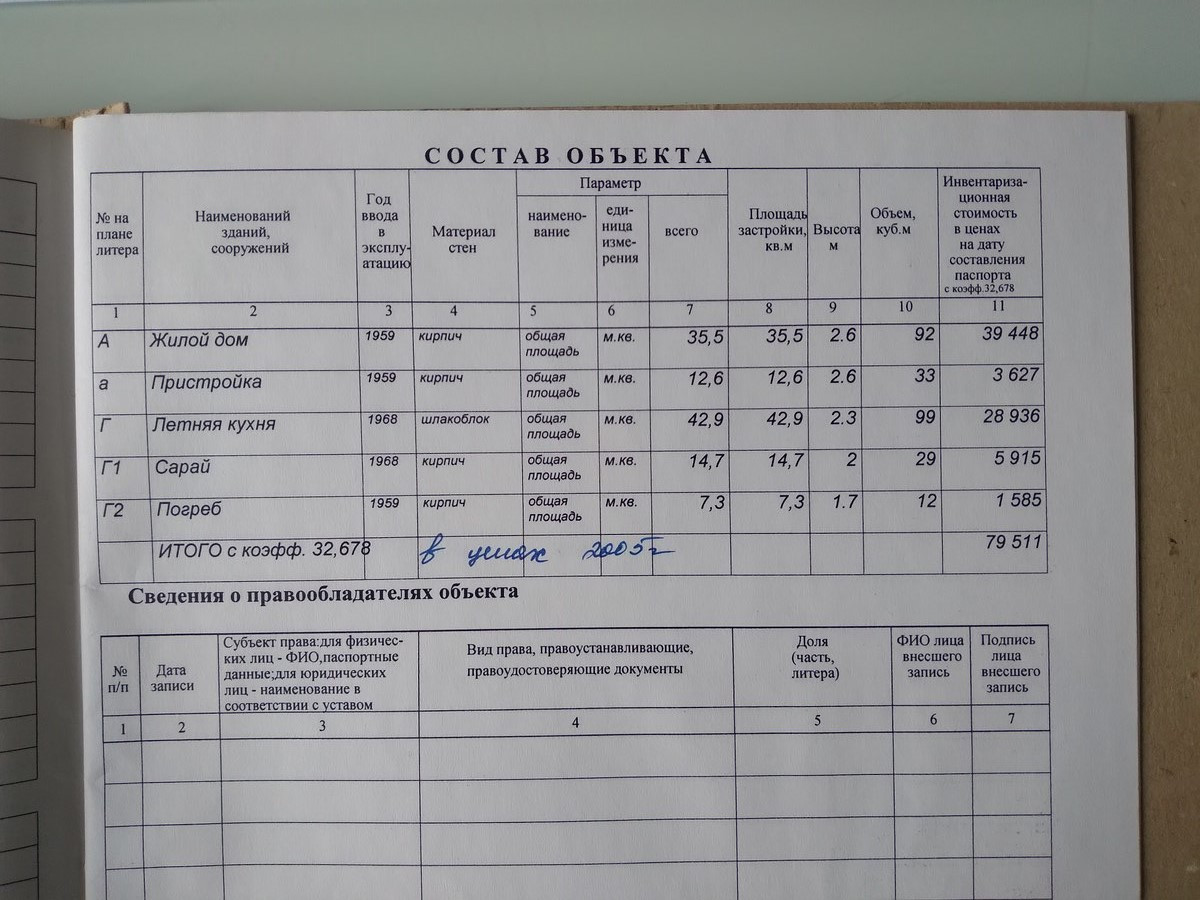 СОСТАВ ОБЪЕКТА
№ на
плане
литера
Наименований
зданий,
сооружений
Год
ввода
в
эксплу-
атацию
Материал
стен
Параметр
наимено-
вание
еди-
ница
изме-
рения
всего
Площадь
застройки,
кв.м
Высота
м
Объем,
куб.м
Инвентариза-
ционная
стоимость
в ценах
на дату
составления
паспорта
с коэфф.32,678
1 2 3 4 5 6 7 8 9 10 11
А Жилой дом 1959 кирпич общая площадь м.кв. 35,5 35,5 2.6 92 39 448
а Пристройка 1959 кирпич общая площадь м.кв. 12,6 12,6 2.6 33 3 627
Г Летняя кухня 1968 шлакоблок общая площадь м.кв. 42,9 42,9 2.3 99 28 936
Г1 Сарай 1968 кирпич общая площадь м.кв. 14,7 14,7 2 29 5 915
Г2 Погреб 1959 кирпич общая площадь м.кв. 7,3 7,3 1.7 12 1 585
ИТОГО с коэфф. 32,678 в ценах 2005г 79 511
Сведения о правообладателях объекта
№
п/п
Дата
записи
Субъект права:для физичес-
ких лиц - ФИО,паспортные
данные;для юридических
лиц - наименование в
соответствии с уставом
Вид права, правоустанавливающие,
правоудостоверяющие документы
Доля
(часть,
литера)
ФИО лица
внесшего
запись
Подпись
лица
внесшего
запись
1 2 3 4 5 6 7